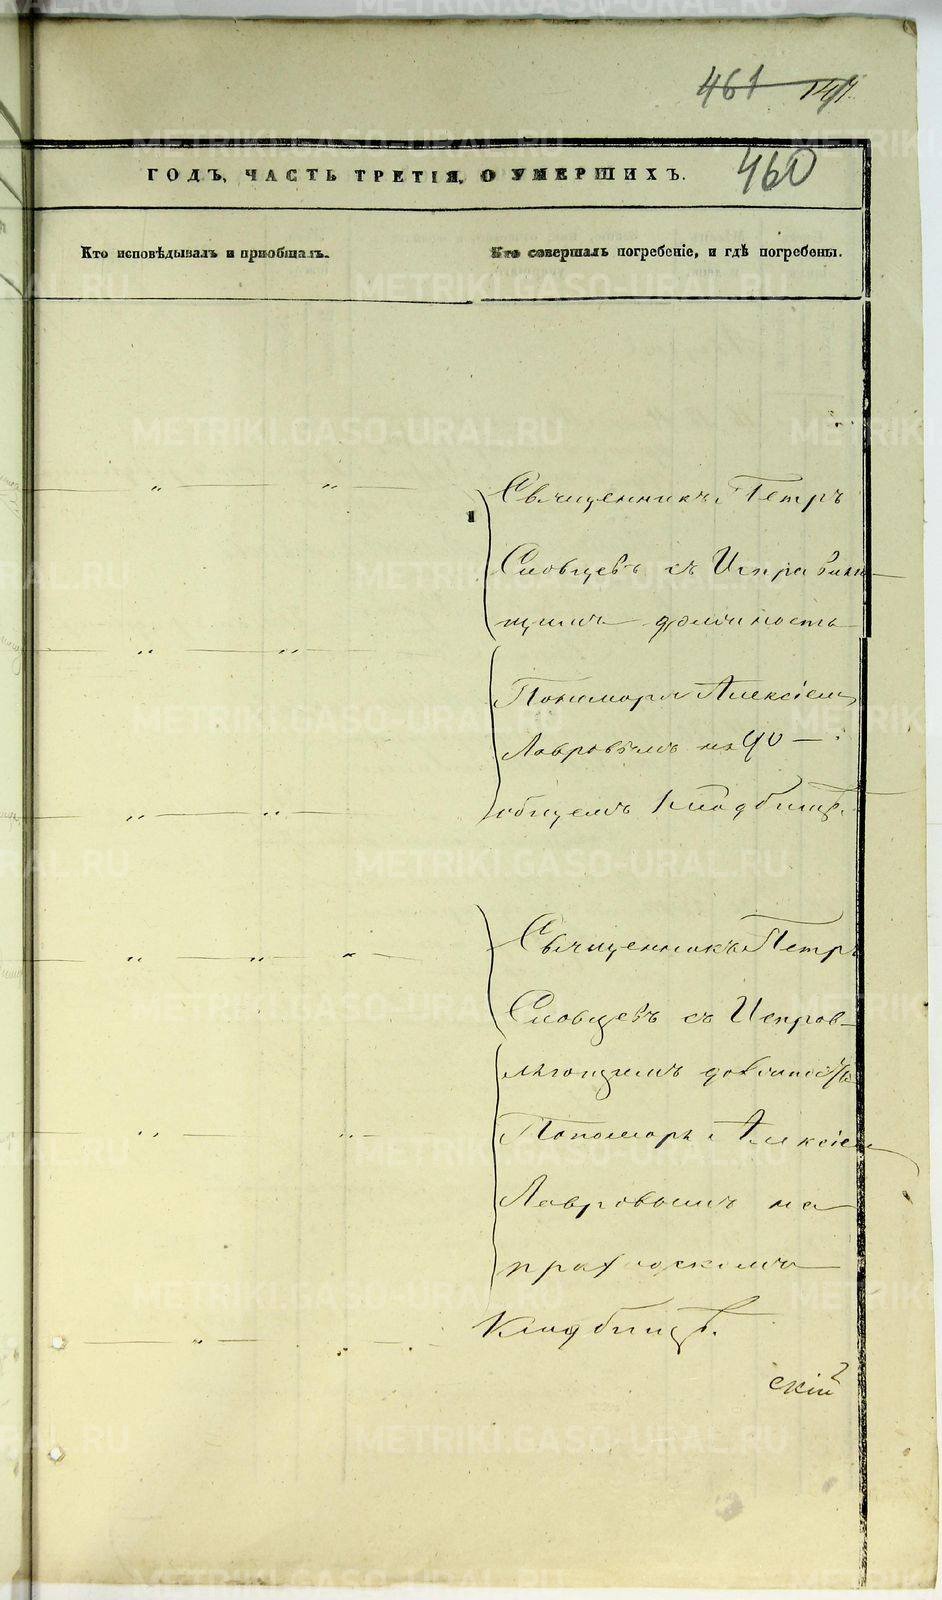 461 141
460
ГОДЪ, ЧАСТЬ ТРЕТІЯ, О УМЕРШИХЪ.
Кто исповѣдывалъ и приобщалъ.
Кто совершалъ погребеніе, и гдѣ погребены.
Священникъ Петръ
Словцевъ съ Исправляю-
щимъ должность
Пономаря Алексіемъ
Лавровымъ на
общемъ кладбищѣ.
Священникъ Петръ
Словцевъ съ Исправ-
ляющимъ должность
Пономаря Алексіемъ
Лавровымъ на
приходскомъ
Кладбищѣ.
скій
METRIKI.GASO-URAL.RU